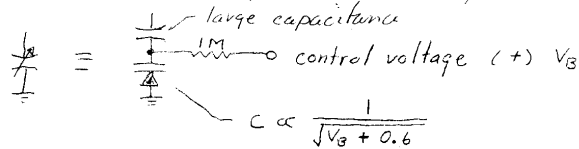 large capacitance
1M
control voltage (+) V_B
=
C ∝ 1/√(V_B + 0.6)